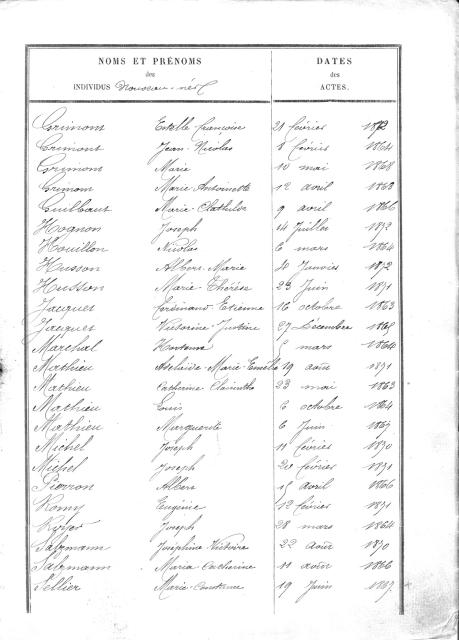 NOMS ET PRÉNOMS
des
INDIVIDUS Nouveau-nés
DATES
des
ACTES.
Grimont Estelle Françoise 21 février 1872
Grimont Jean-Nicolas 8 février 1864
Grimont Marie 10 mai 1868
Grimont Marie Antoinette 12 avril 1863
Guilbaut Marie Clathilde 9 avril 1866
Hognon Joseph 14 Juillet 1872
Houillon Nicolas 6 mars 1864
Husson Albert Marie 20 Janvier 1872
Husson Marie Thérèse 23 Juin 1871
Jacques Ferdinand Etienne 16 octobre 1863
Jacques Victorine Justine 27 Décembre 1865
Marchal Hortense mars 1864
Mathieu Adelaïde-Marie Emélie 19 août 1871
Mathieu Catherine 23 mai 1863
Mathieu Louis 6 octobre 1864
Mathieu Marguerite 6 Juin 1867
Michel Joseph 11 février 1870
Michel Joseph 20 février 1871
Pierron Albert 15 avril 1866
Romy Eugénie 12 février 1871
Joseph 28 mars 1864
Salzmann Joséphine Victoire 22 août 1870
Salzmann Maria Catherine 11 août 1866
Sellier Marie 19 Juin 1867